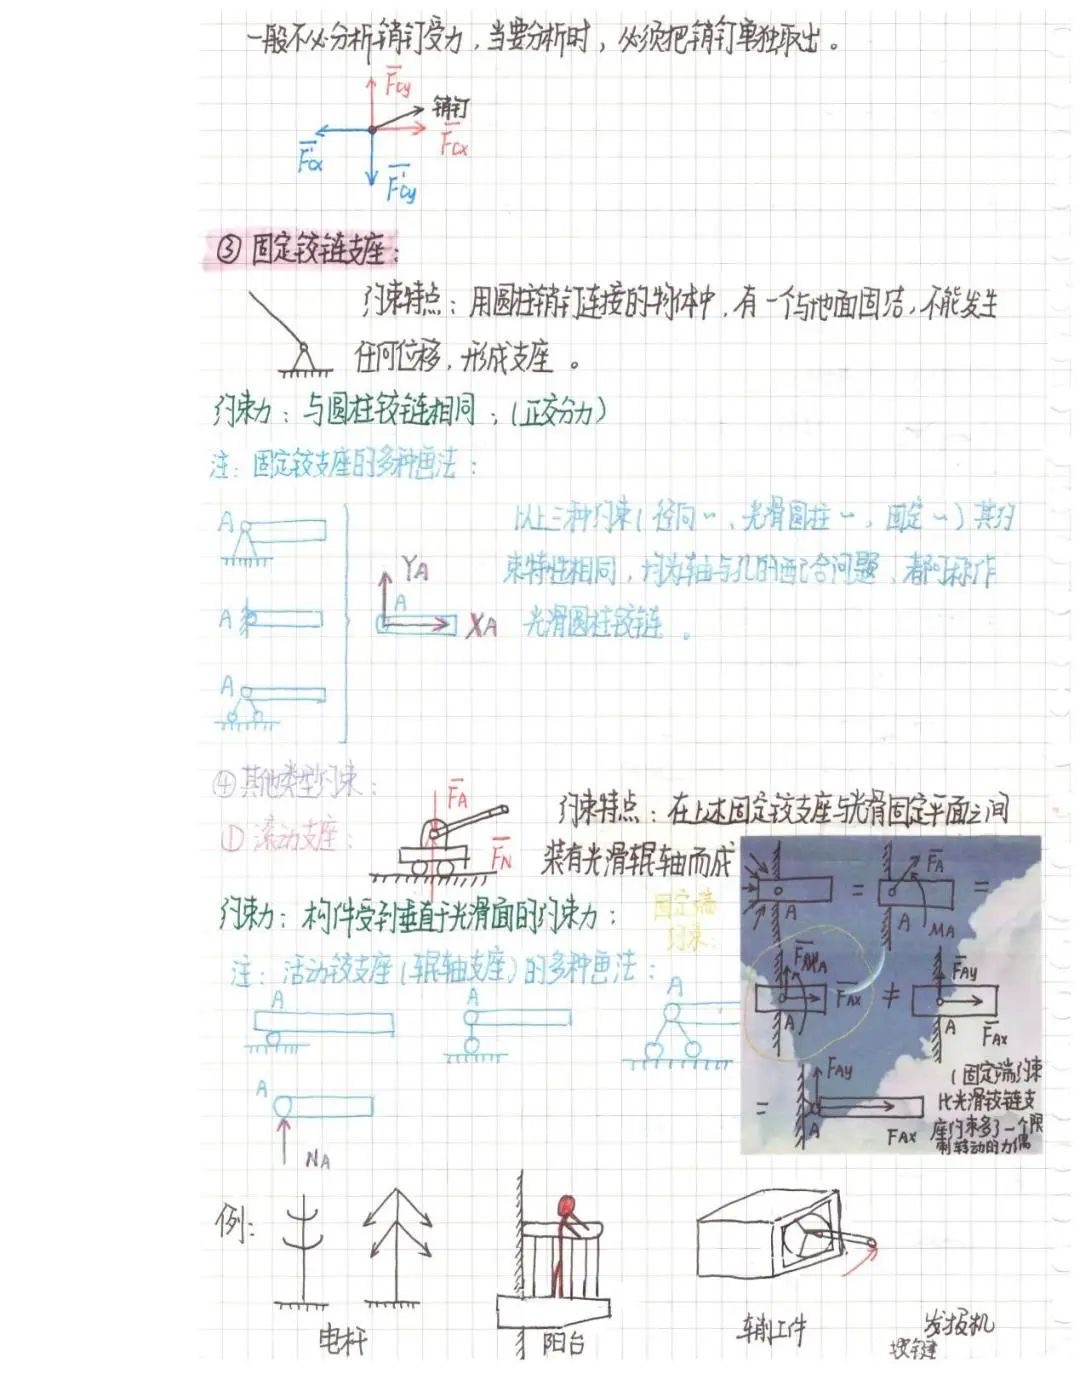 一般不必分析销钉受力，当要分析时，必须把销钉单独取出。
F̄cy
销钉
F̄cx
F̄'cx
F̄'cy
③ 固定铰链支座：
约束特点：用圆柱销钉连接的物体中，有一个与地面固结，不能发生
任何位移，形成支座。
约束力：与圆柱铰链相同；(正交分力)
注：固定铰支座的多种画法：
A
A
A
YA
A
XA
以上三种约束(径向~、光滑圆柱~，固定~)其约
束特性相同，均为轴与孔的配合问题，都可称作
光滑圆柱铰链。
④其他类型约束：
① 滚动支座：
F̄A
F̄N
约束特点：在上述固定铰支座与光滑固定平面之间
装有光滑辊轴而成
约束力：构件受到垂直于光滑面的约束力；
注：活动铰支座(辊轴支座)的多种画法：
A
A
A
A
NA
固定端
约束：
A
=
F̄A
A
MA
=
F̄Ay
MA
F̄Ax
A
≠
F̄Ay
A
F̄Ax
=
FAy
A
FAx
(固定端约束
比光滑铰链支
座约束多了一个限
制转动的力偶
例：
电杆
阳台
车削工件
发报机
按键